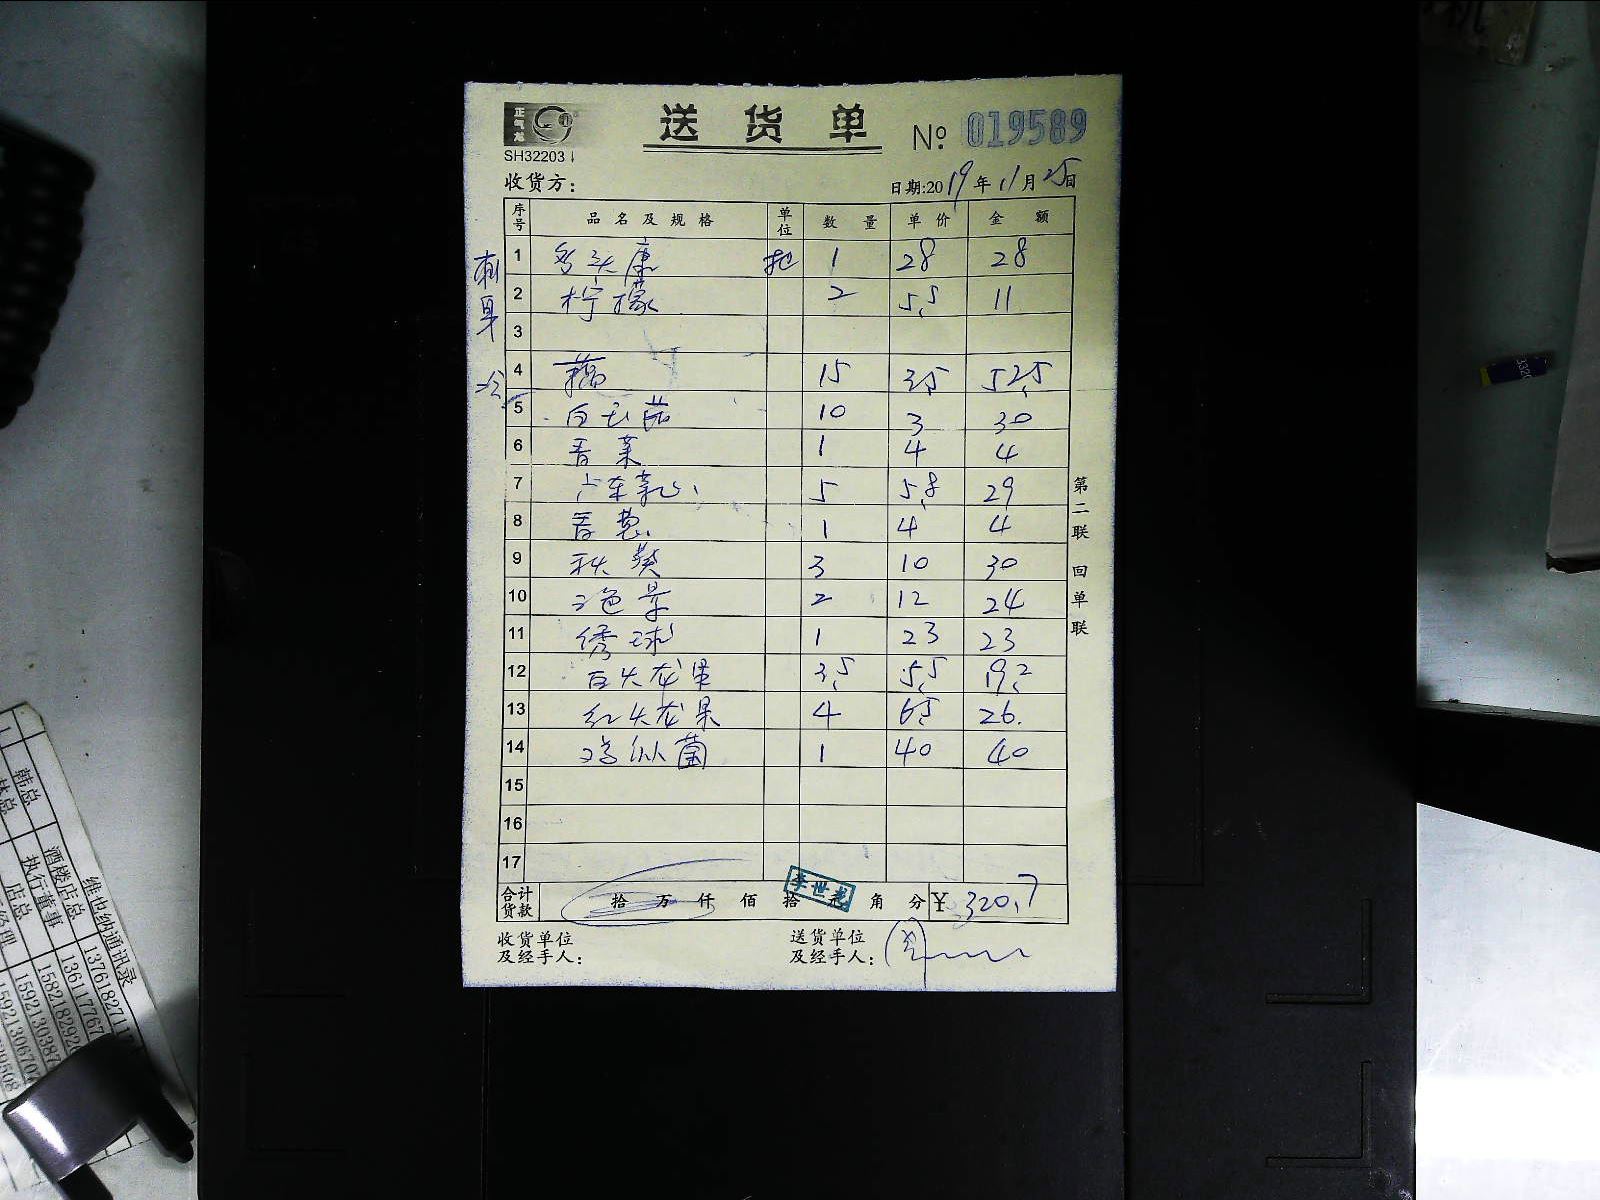 正气龙
送货单
№ 019589
SH32203
收货方：
日期:2019年11月25日
序号 品名及规格 单位 数量 单价 金额
刺身
1 1 28 28
2 柠檬 2 5.5 11
3
冷
4 藕 15 3.5 52.5
5 白玉菇 10 3 30
6 香菜 1 4 4
7 广东菜心 5 5.8 29
8 香葱 1 4 4
9 秋葵 3 10 30
10 2 12 24
11 绣球 1 23 23
12 白火龙果 3.5 5.5 19.2
13 红火龙果 4 6.5 26.
14 鸡枞菌 1 40 40
15
16
17
合计货款 拾 万 仟 佰 拾 元 角 分 ¥ 320.7
李世龙
收货单位及经手人：
送货单位及经手人：
第二联 回单联
维也纳通讯录
韩总 酒楼店总
执行董事
店总